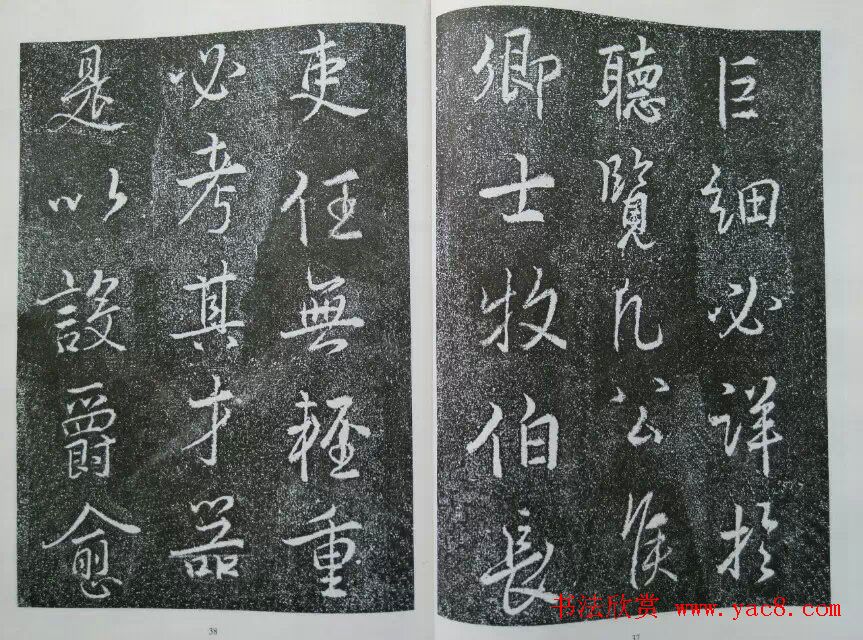 巨細必詳於
聽覽凡公侯
卿士牧伯長
吏任無輕重
必考其才器
是以設爵愈
38
37
书法欣赏 www.yac8.com